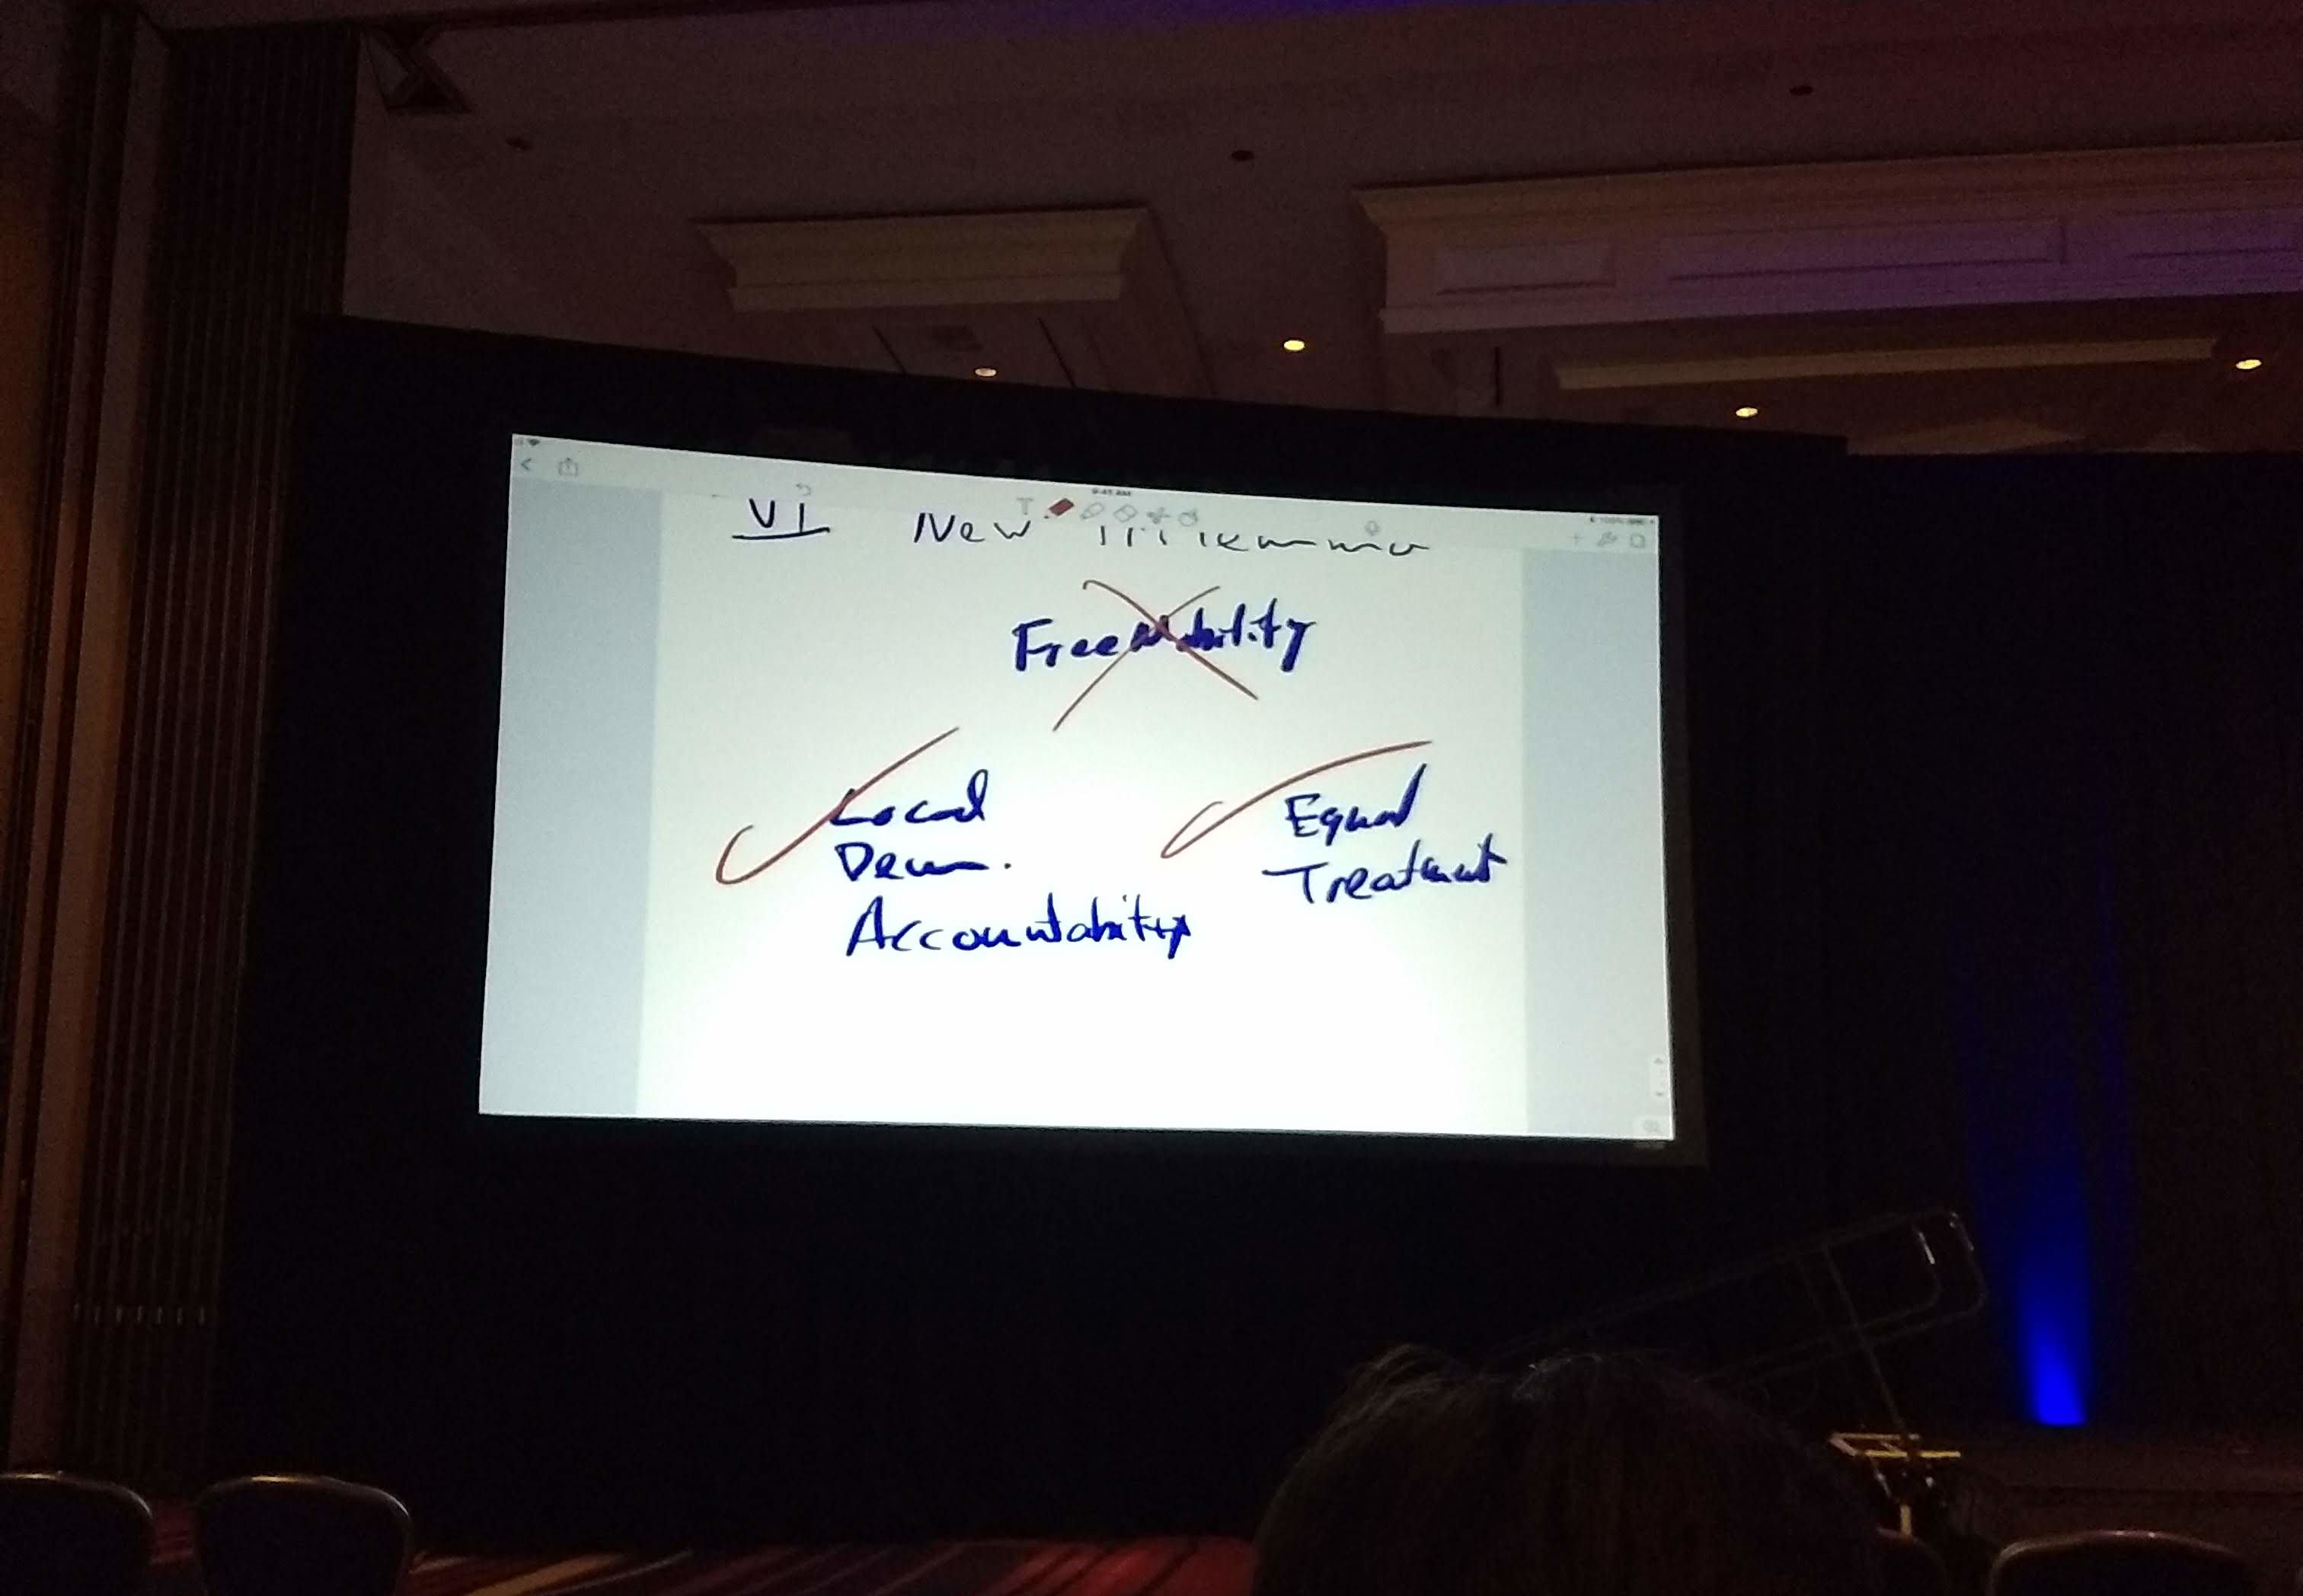 9:41 AM
100%
VI New Trilemma
Free Mobility
Local
Dem.
Accountability
Equal
Treatment